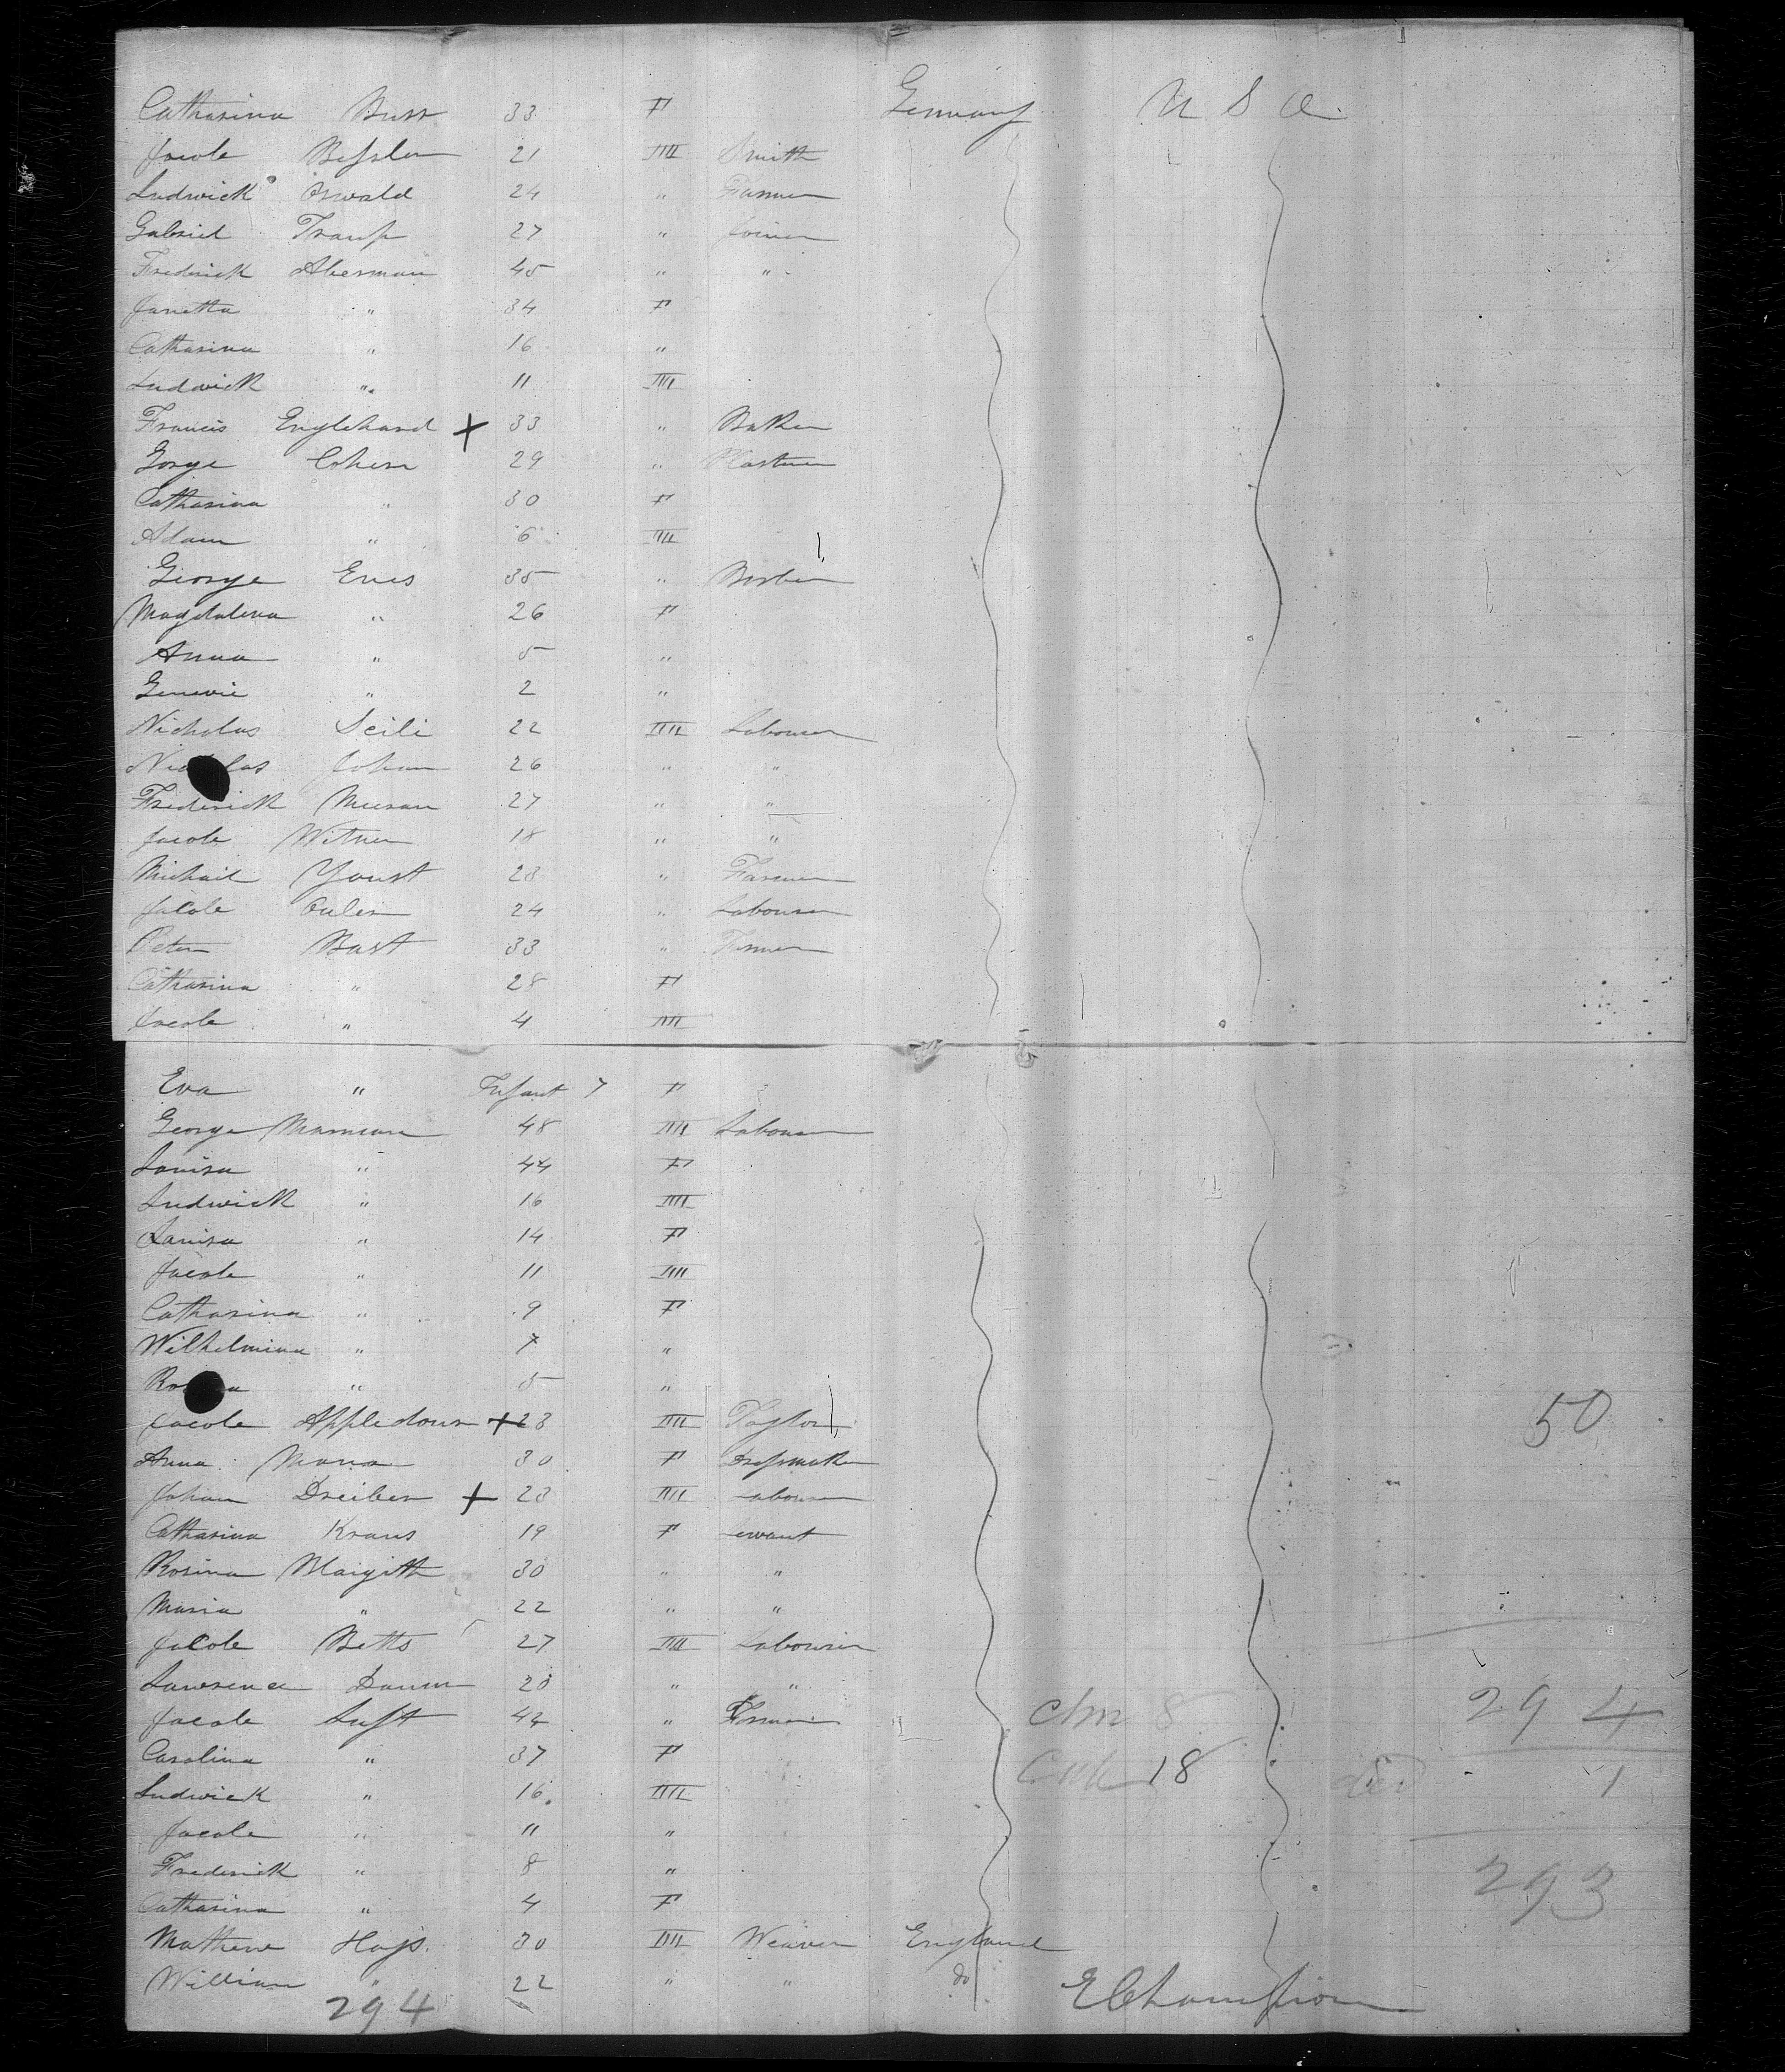 Catharina Buss 33 F Germany U S A
Jacob Bessler 21 M Smith
Ludwick Oswald 24 " Farmer
Gabriel 27 " Joiner
Frederick Aberman 45 " "
Janetta " 34 F
Catharina " 16 "
Ludwick " 11 M
Francis Englehard + 33 " Baker
Gorge Cohern 29 "
Catharina " 30 F
Adam " 6 M
George Eves 35 "
Magdalena " 26 F
Anna " 5 "
Genevie " 2 "
Nicholas Seili 22 M Labourer
Johan 26 " "
Frederick 27 " "
Jacob Witner 18 " "
Michail Youst 23 " Farmer
Jacob 24 " Labourer
Peter Bast 33 "
Catharina " 28 F
Jacob " 4 M
Eva " Infant F
George 48 M Labourer
Louisa " 44 F
Ludwick " 16 M
Louisa " 14 F
Jacob " 11 M
Catharina " 9 F
Wilhelmina " 7 "
" 5 "
Jacob Appledourn + 23 M Taylor 50
Anna Maria 30 F Dressmaker
Johan Dreiber + 23 M Labourer
Catharina Kraus 19 F Servant
Rosina 30 " "
Maria " 22 " "
Jacob Betts 27 M Labourer
Lawrence Daum " "
Jacob Luft 42 " 8 294
Carolina " 37 F 18 1
Ludwick " 16 M
Jacob " 11 "
Frederick " 8 " 293
Catharina " 4 F
Mathew Hays 30 M Weaver England
William " 22 " " do E Champion
294